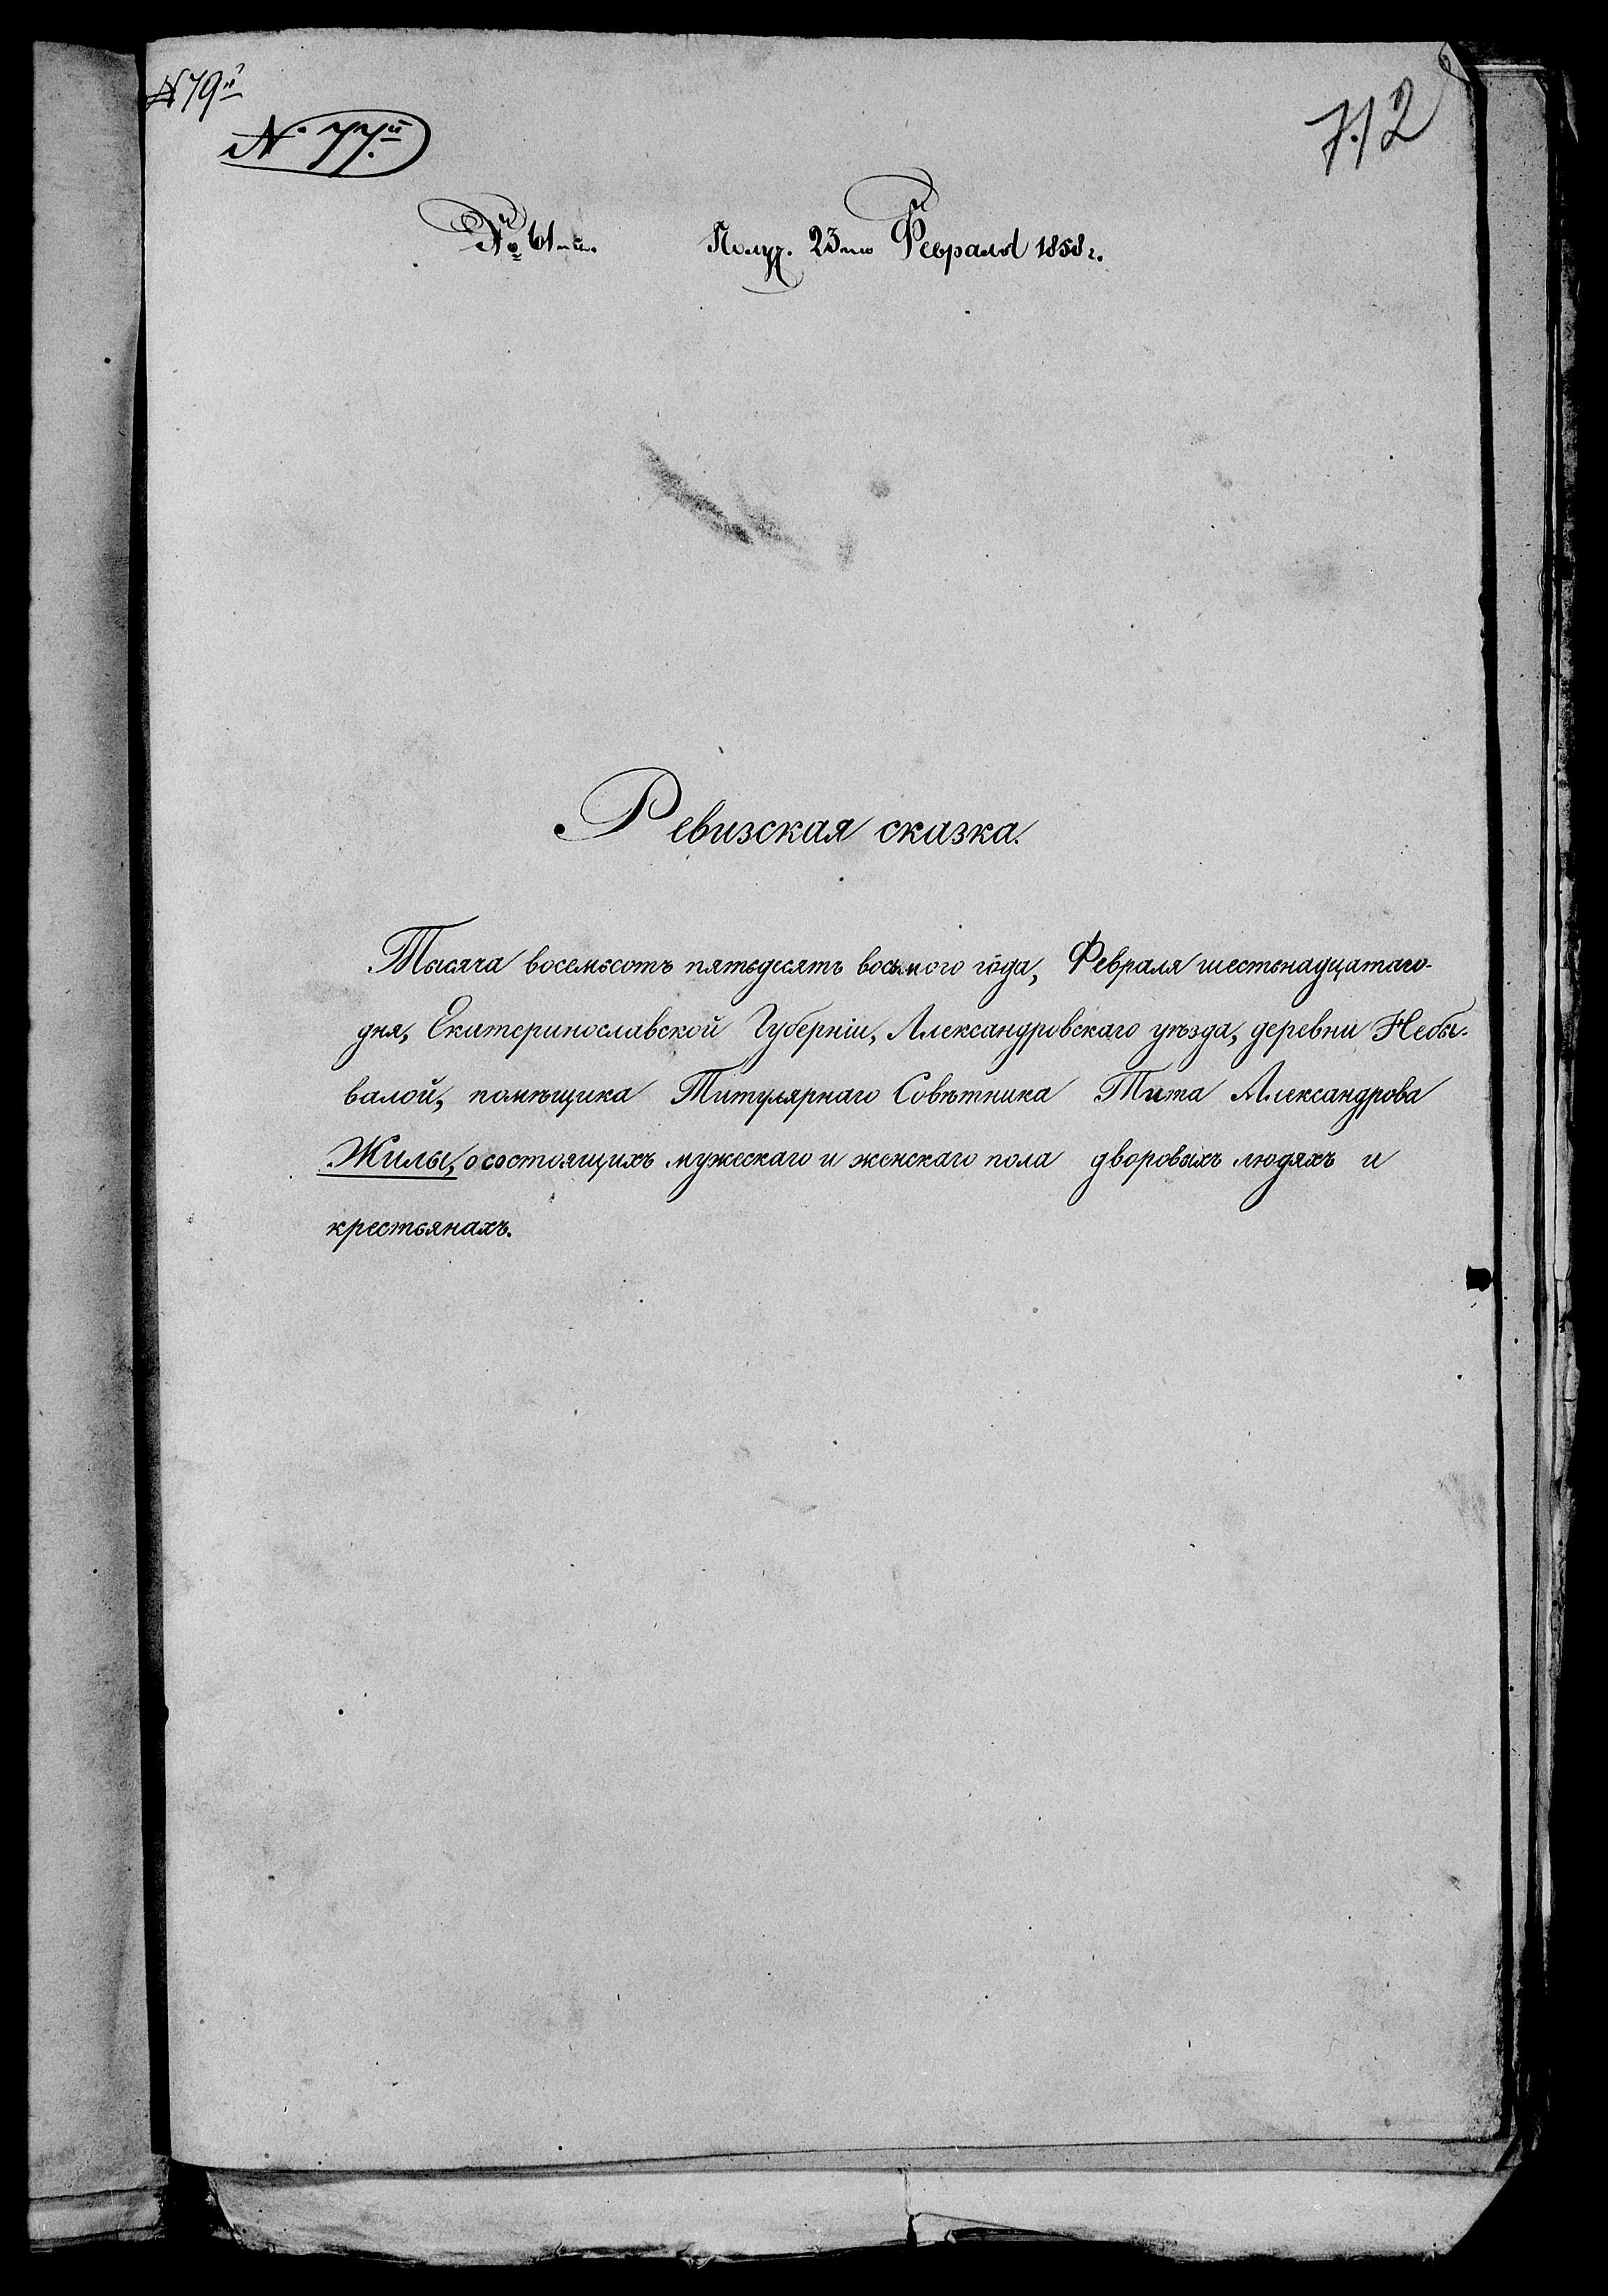 № 79й
№ 77.й
712
№ 61й. Получ. 23го Февраля 1858 г.
Ревизская сказка.
Тысяча восемьсотъ пятьдесятъ восьмого года, Февраля шестьнадцатаго
дня, Екатеринославской Губерніи, Александровскаго уѣзда, деревни Небы-
валой, помѣщика Титулярнаго Совѣтника Тита Александрова
Жилы, о состоящихъ мужескаго и женскаго пола дворовыхъ людяхъ и
крестьянахъ.